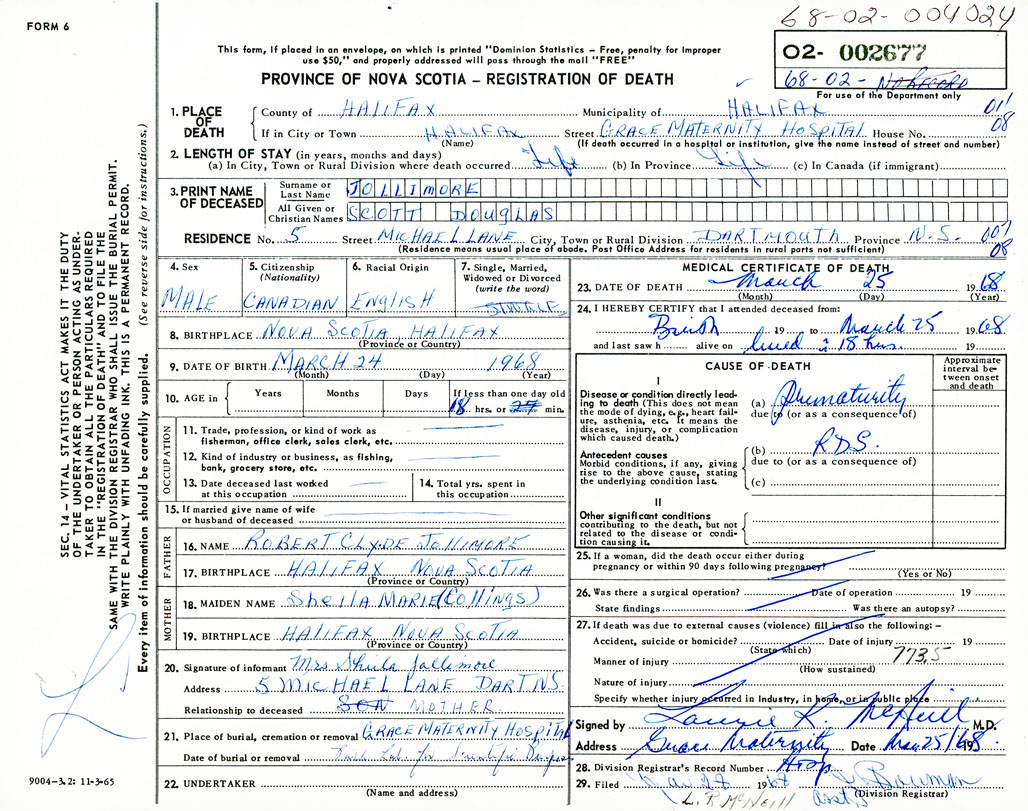 68-02-004024
FORM 6
This form, if placed in an envelope, on which is printed "Dominion Statistics – Free, penalty for improper
use $50," and properly addressed will pass through the mail "FREE"
PROVINCE OF NOVA SCOTIA – REGISTRATION OF DEATH
02- 002677
68-02-
For use of the Department only
1. PLACE OF DEATH
County of HALIFAX Municipality of HALIFAX 011
If in City or Town HALIFAX Street GRACE MATERNITY HOSPITAL House No. 08
(Name) (If death occurred in a hospital or institution, give the name instead of street and number)
2. LENGTH OF STAY (in years, months and days)
(a) In City, Town or Rural Division where death occurred Life (b) In Province Life (c) In Canada (if immigrant)
3. PRINT NAME OF DECEASED
Surname or Last Name JOLLIMORE
All Given or Christian Names SCOTT DOUGLAS
RESIDENCE No. 5 Street MICHAEL LANE City, Town or Rural Division DARTMOUTH Province N.S. 007
(Residence means usual place of abode. Post Office Address for residents in rural parts not sufficient) 08
4. Sex
MALE
5. Citizenship
(Nationality)
CANADIAN
6. Racial Origin
ENGLISH
7. Single, Married,
Widowed or Divorced
(write the word)
SINGLE
8. BIRTHPLACE NOVA SCOTIA HALIFAX
(Province or Country)
9. DATE OF BIRTH MARCH 24 1968
(Month) (Day) (Year)
10. AGE in Years Months Days If less than one day old
18 hrs. or 27 min.
OCCUPATION
11. Trade, profession, or kind of work as
fisherman, office clerk, sales clerk, etc.
12. Kind of industry or business, as fishing,
bank, grocery store, etc.
13. Date deceased last worked
at this occupation
14. Total yrs. spent in
this occupation
15. If married give name of wife
or husband of deceased
FATHER
16. NAME ROBERT CLYDE JOLLIMORE
17. BIRTHPLACE HALIFAX NOVA SCOTIA
(Province or Country)
MOTHER
18. MAIDEN NAME SHEILA MARIE (Collings)
19. BIRTHPLACE HALIFAX NOVA SCOTIA
(Province or Country)
20. Signature of informant Mrs Sheila Jollimore
Address 5 MICHAEL LANE DART NS
Relationship to deceased SON MOTHER
21. Place of burial, cremation or removal GRACE MATERNITY HOSPITAL
Date of burial or removal
22. UNDERTAKER
(Name and address)
MEDICAL CERTIFICATE OF DEATH
23. DATE OF DEATH March 25 1968
(Month) (Day) (Year)
24. I HEREBY CERTIFY that I attended deceased from:
Birth 19 to March 25 1968
and last saw h alive on lived 18 hrs. 19
CAUSE OF DEATH
Approximate interval between onset and death
I
Disease or condition directly leading to death (This does not mean the mode of dying, e.g., heart failure, asthenia, etc. It means the disease, injury, or complication which caused death.)
(a) Prematurity
due to (or as a consequence of)
Antecedent causes
Morbid conditions, if any, giving rise to the above cause, stating the underlying condition last.
(b) R.D.S.
due to (or as a consequence of)
(c)
II
Other significant conditions
contributing to the death, but not related to the disease or condition causing it.
25. If a woman, did the death occur either during
pregnancy or within 90 days following pregnancy?
(Yes or No)
26. Was there a surgical operation? Date of operation 19
State findings Was there an autopsy?
27. If death was due to external causes (violence) fill in also the following: –
Accident, suicide or homicide? Date of injury 19
(State which) 773.5
Manner of injury
(How sustained)
Nature of injury
Specify whether injury occurred in Industry, in home, or in public place
Signed by M.D.
Address Grace Maternity Date Mar 25/68 19
28. Division Registrar's Record Number
29. Filed 19
(Division Registrar)
L. R. McNeill
SEC. 14 – VITAL STATISTICS ACT MAKES IT THE DUTY
OF THE UNDERTAKER OR PERSON ACTING AS UNDER-
TAKER TO OBTAIN ALL THE PARTICULARS REQUIRED
IN THE "REGISTRATION OF DEATH" AND TO FILE THE
SAME WITH THE DIVISION REGISTRAR WHO SHALL ISSUE THE BURIAL PERMIT.
WRITE PLAINLY WITH UNFADING INK. THIS IS A PERMANENT RECORD.
Every item of information should be carefully supplied. (See reverse side for instructions.)
9004-3.2: 11-3-65